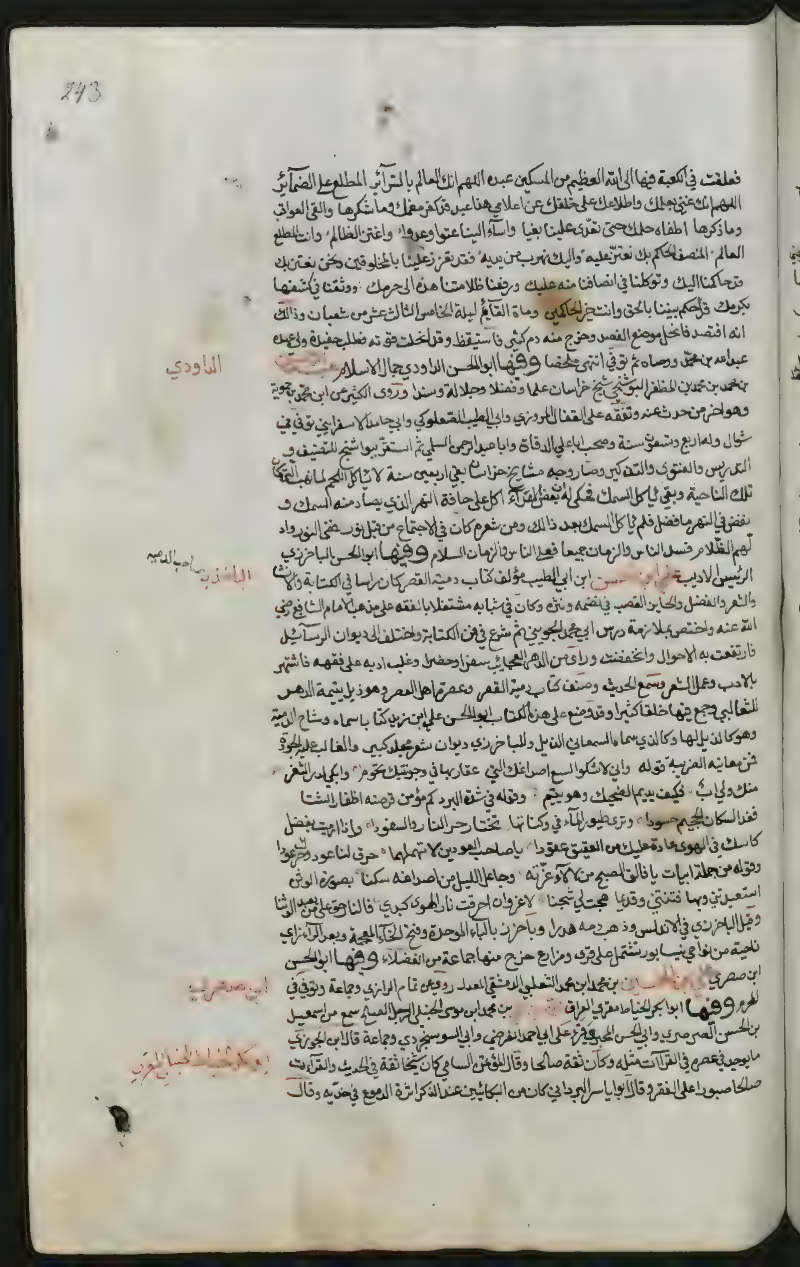 243
فعلقت في الكعبة فيها الى الله العظيم من المسكين عبده اللهم انك العالم بالسرآئر المطلع على الضمآئر
اللهم انك غني بعلمك واطلاعك على خلقك عن اعلامي هذا عبد قد كفر نعمك وما شكرها والقى العواقب
وما ذكرها اطغاه حلمك حتى تعدى علينا بغيا واسآء الينا عتوا وعدوا واغتر الظالم وانت المطلع
العالم المنصف الحاكم بك نعتز عليه واليك نهرب من يديه فقد تعزز علينا بالمخلوقين ونحن نعتز بك
وقد حاكمنا اليك وتوكلنا في انصافنا منه عليك ورفعنا ظلامتنا هذه الى حرمك ووثقنا في كشفها
بكرمك فاحكم بيننا بالحق وانت خير الحاكمين ومات القآئم ليلة الخامس الثالث عشر من شعبان وذالك
انه افتصد فانحل موضع الفصد وخرج منه دم كثير فاستيقظ وقد انحلت قوته فطلب حفيده ولي عهده
عبد الله بن محمد ووصاه ثم توفي انتهى ملخصا وفيها ابو الحسن الداودي جمال الاسلام عبد الرحمن
الداودي
بن محمد بن محمد بن المظفر البوشنجي شيخ خراسان علما وفضلا وجلالة وسندا وروى الكثير عن ابن محمد بن حموية
وهو اخر من حدث عنه وتفقه على القفال المروزي وابي الطيب الصعلوكي وابي حامد الاسفرايني توفي في
شوال وله اربع وتسعون سنة وصحب ابا علي الدقاق وابا عبد الرحمن السلمي ثم استقر ببوشنج للتصنيف و
التدريس والفتوى والتذكير وصار وجه مشايخ خراسان بقي اربعين سنة لا ياكل اللحم لما نهب التركمان
تلك الناحية وبقي ياكل السمك فحكى له بعض الامرآء اكل على حافة النهر الذي يصاد منه السمك و
نفض في النهر ما فضل فلم ياكل السمك بعد ذالك ومن شعره كان في الاجتماع من قبل نور فمضى النور واد
لهم الظلام فسد الناس والزمان جميعا فعلى الناس والزمان السلام وفيها ابو الحسن الباخرزي
الرئيس الاديب علي ابن حسن ابن ابي الطيب مؤلف كتاب دمية القصر كان راسا في الكتابة والانشا
الباخرزي صاحب الدمية
والشعر والفضل والحايز القصب في نضمه ونثره وكان في شبابه مشتغلا بالفقه على مذهب الامام الشافعي رضي
الله عنه واختص بملازمة درس ابي محمد الجويني ثم شرع في فن الكتابة واختلف الى ديوان الرسآئل
فارتفعت به الاحوال وانخفضت وراى من الدهر العجائب سفرا وحضرا وغلب ادبه على فقهه فاشتهر
بالادب وعمل الشعر وسمع الحديث وصنف كتاب دمية القصر وعصرة اهل العصر وهو ذيل يتيمة الدهر
للثعالبي وجمع فيها خلقا كثيرا وقد وضع على هذا الكتاب ابو الحسن علي ابن زيد كتابا سماه وشاح الدمية
وهو كالذيل لها وكالذي سماه السمعاني الذيل وللباخرزي ديوان شعر مجلد كبير والغالب عليه الجودة
فمن معانيه الغريبة قوله واني لاشكو لسع اصداغك التي عقاربها في وجنتيك تحوم وابكي لدر الثغر
منك ولي اب فكيف يديم الضحك وهو يتيم وقوله في شدة البرد كم مؤمن قرصته اظفار الشتا
فغدا لسكان الجحيم حسودا وترى طيور المآء في وكناتها تختار حر النار والسفودا واذا رميت بفضل
كاسك في الهوى عادت عليك من العقيق عقودا يا صاحب العودين لا تهملهما حرق لنا عود وحرك عودا
وقوله من جملة ابيات يا فالق الصبح من لالاء غرته وجاعل الليل من اصداغه سكنا بصورة الوثن
استعبدتني وبها فتنتني وقديما هجت لي شجنا لا غرو ان احرقت نار الهوى كبدي فالنار حق على من يعبد الوثنا
وقتل الباخرزي في الاندلس وذهب دمه هدرا وباخرز بالبآء الموحدة وفتح الخآء المعجمة وبعد الرآء زاي
ناحية من نواحي نيسابور تشتمل على قرى ومزارع خرج منها جماعة من الفضلاء وفيها ابو الحسن
ابن صصري علي بن الحسين بن محمد ابن محمد الثعلبي الدمشقي المعدل روى عن تمام الرازي وجماعة وتوفي في
ابن صصري
المحرم وفيها ابو بكر الخياط مقري العراق بن محمد ابن موسى الحنبلي الرجل الصالح سمع من اسمعيل
بن الحسن الصرصري وابي الحسن المجبر وقرء على ابي احمد الفرضي وابي السوسنجردي وجماعة قال ابن الجوزي
ما يوجد في عصره في القرآات مثله وكان ثقة صالحا وقال المؤتمن الساجي كان شيخا ثقة في الحديث والقرآءت
ابو بكر الخياط الحنبلي المقري
صالحا صبورا على الفقر وقال ابو ياسر البرداني كان من البكائين عند الذكر اثرة الدموع في خديه وقال